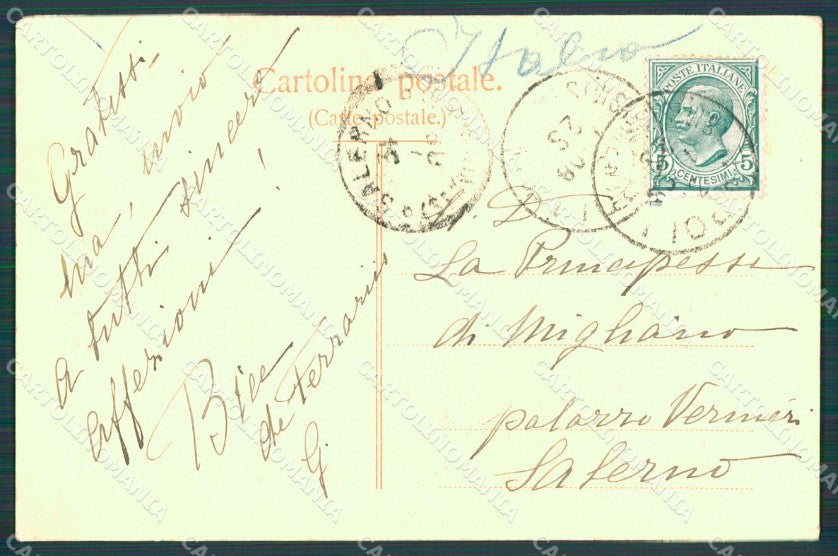 Italia
Cartolina postale.
(Carte postale.)
POSTE ITALIANE
5 5
CENTESIMI
SALERNO
Gratissi-
ma, invio
a tutti sincere
affezioni!
Bice
de Ferrariis
G.
S. D.
La Principessa
di Migliano
palazzo Vernieri
Salerno
CARTOLINOMANIA